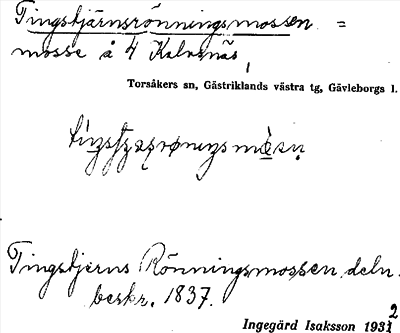 Tingstjärnsrönningsmossen =
mosse å 4 Kalvsnäs,
Torsåkers sn, Gästriklands västra tg, Gävleborgs l.
Tingstjerns Rönningsmossen, deln.
beskr. 1837.
Ingegärd Isaksson 1932